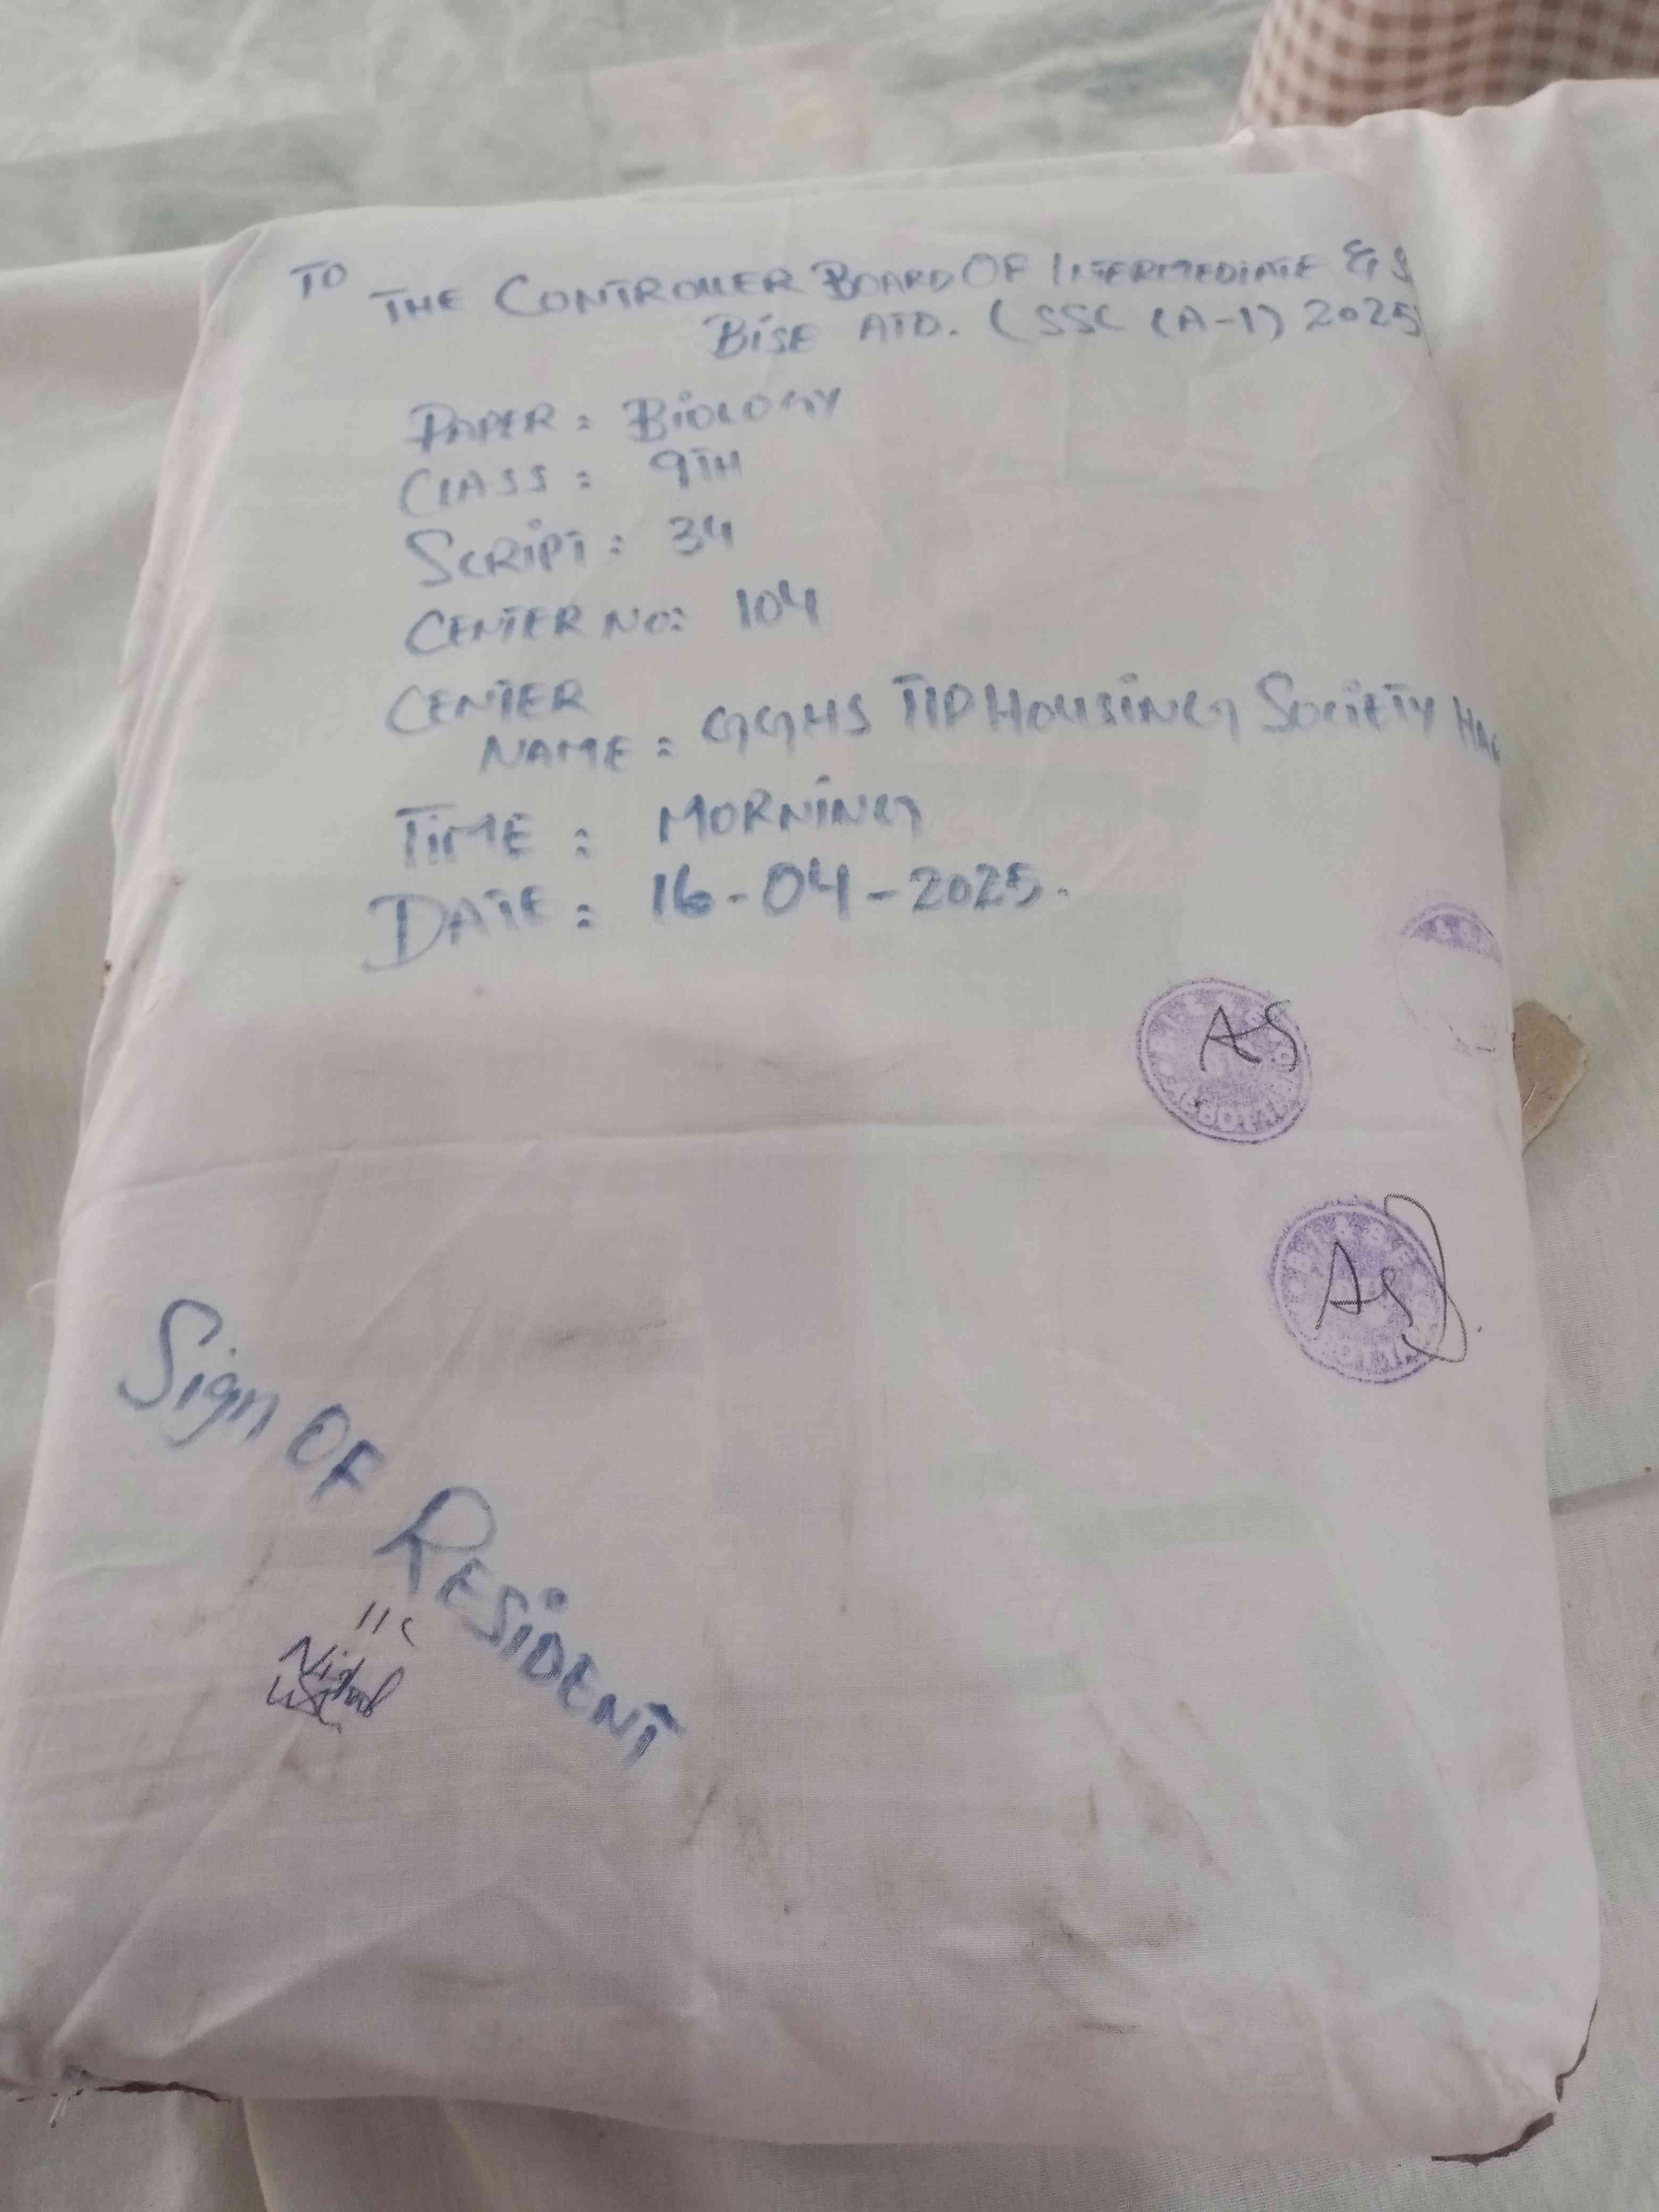 TO
THE CONTROLLER BOARD OF INTERMEDIATE & S
BISE ATD. (SSC (A-1) 2025
PAPER: BIOLOGY
CLASS: 9TH
SCRIPT: 34
CENTER NO: 104
CENTER
NAME: GGHS TIP HOUSING SOCIETY HA
TIME: MORNING
DATE: 16-04-2025.
AS
AS
Sign OF RESIDENT